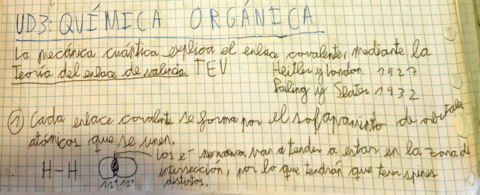 UD3: QUÍMICA ORGÁNICA
La mecánica cuántica explica el enlace covalente, mediante la
Teoría del enlace de valencia TEV
Heitler y London 1927
Pauling y Slater 1932
① Cada enlace covalente se forma por el solapamiento de orbitales
atómicos que se unen.
H-H
1s¹ 1s¹
los e⁻ van a tender a estar en la zona de
intersección, por lo que tendrán que tener spines
distintos.